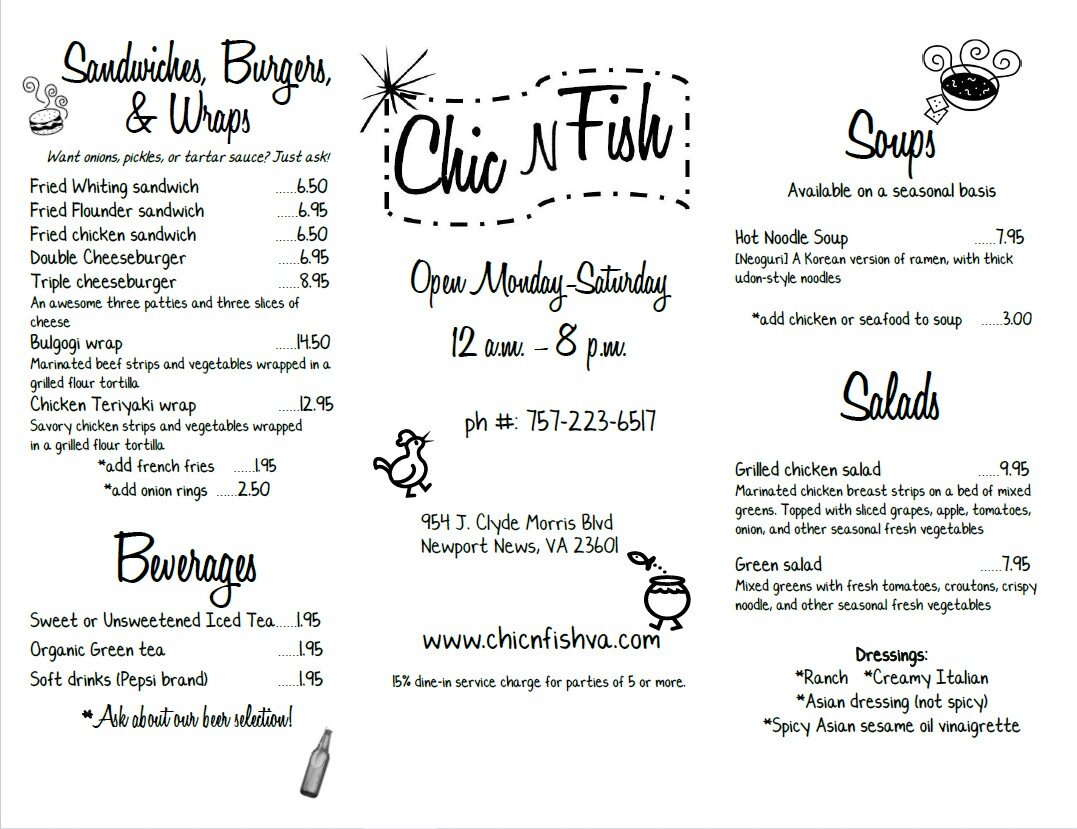 Sandwiches, Burgers,
& Wraps
Want onions, pickles, or tartar sauce? Just ask!
Fried Whiting sandwich ......6.50
Fried Flounder sandwich ......6.95
Fried chicken sandwich ......6.50
Double Cheeseburger ......6.95
Triple cheeseburger ......8.95
An awesome three patties and three slices of
cheese
Bulgogi wrap ......14.50
Marinated beef strips and vegetables wrapped in a
grilled flour tortilla
Chicken Teriyaki wrap ......12.95
Savory chicken strips and vegetables wrapped
in a grilled flour tortilla
*add french fries ......1.95
*add onion rings ......2.50
Beverages
Sweet or Unsweetened Iced Tea......1.95
Organic Green tea ......1.95
Soft drinks (Pepsi brand) ......1.95
*Ask about our beer selection!
Chic N Fish
Open Monday-Saturday
12 a.m. – 8 p.m.
ph #: 757-223-6517
954 J. Clyde Morris Blvd
Newport News, VA 23601
www.chicnfishva.com
15% dine-in service charge for parties of 5 or more.
Soups
Available on a seasonal basis
Hot Noodle Soup ......7.95
[Neoguri] A Korean version of ramen, with thick
udon-style noodles
*add chicken or seafood to soup ......3.00
Salads
Grilled chicken salad ......9.95
Marinated chicken breast strips on a bed of mixed
greens. Topped with sliced grapes, apple, tomatoes,
onion, and other seasonal fresh vegetables
Green salad ......7.95
Mixed greens with fresh tomatoes, croutons, crispy
noodle, and other seasonal fresh vegetables
Dressings:
*Ranch *Creamy Italian
*Asian dressing (not spicy)
*Spicy Asian sesame oil vinaigrette